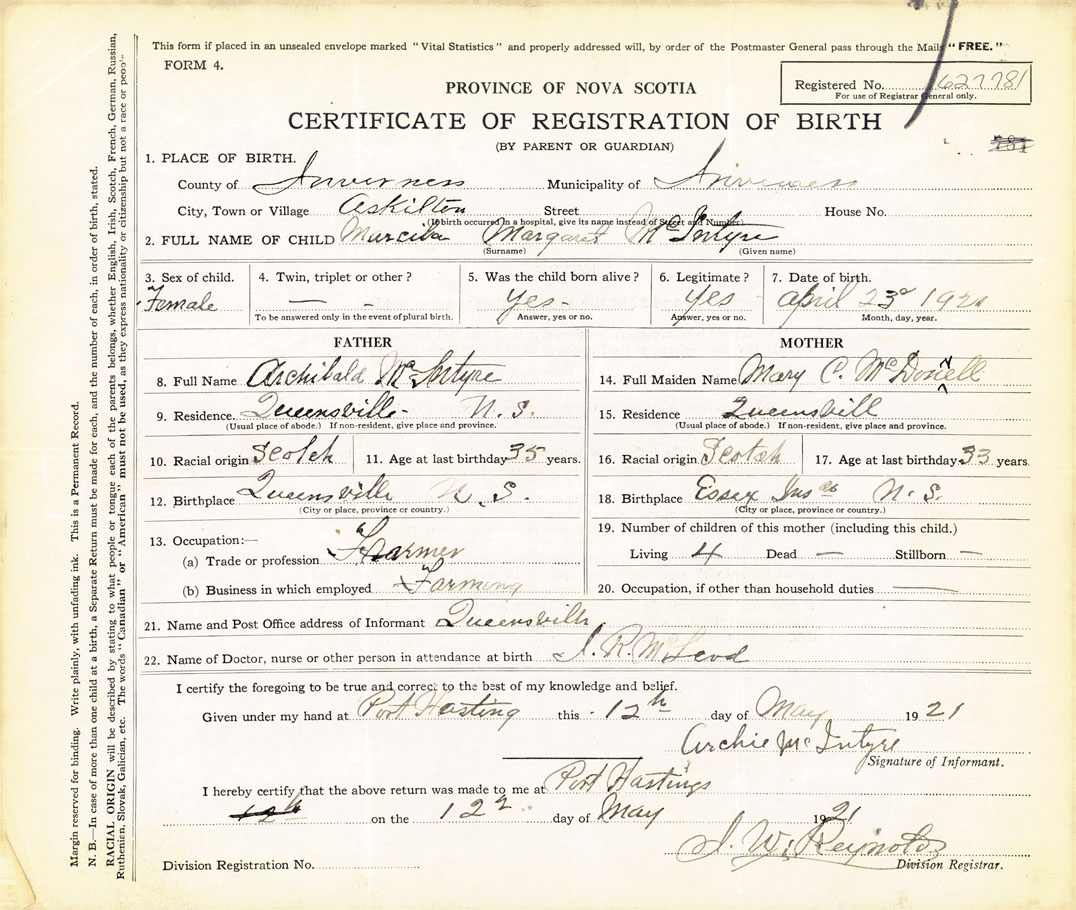 This form if placed in an unsealed envelope marked "Vital Statistics" and properly addressed will, by order of the Postmaster General pass through the Mails "FREE."
FORM 4.
Registered No. 627781
For use of Registrar General only.
PROVINCE OF NOVA SCOTIA
CERTIFICATE OF REGISTRATION OF BIRTH
(BY PARENT OR GUARDIAN)
781
1. PLACE OF BIRTH.
County of Inverness Municipality of Inverness
City, Town or Village Askilton Street House No.
(If birth occurred in a hospital, give its name instead of Street and Number)
2. FULL NAME OF CHILD Margaret McIntyre
(Surname) (Given name)
3. Sex of child. 4. Twin, triplet or other? 5. Was the child born alive? 6. Legitimate? 7. Date of birth.
Female — - Yes - Yes April 23d
To be answered only in the event of plural birth. Answer, yes or no. Answer, yes or no. Month, day, year.
FATHER MOTHER
8. Full Name Archibald McIntyre 14. Full Maiden Name Mary C. McDonnell
9. Residence. Queensville - N. S. 15. Residence Queensvill
(Usual place of abode.) If non-resident, give place and province. (Usual place of abode.) If non-resident, give place and province.
10. Racial origin Scotch 11. Age at last birthday 35 years. 16. Racial origin Scotch 17. Age at last birthday 33 years.
12. Birthplace Queensville N. S. 18. Birthplace Essex N. S.
(City or place, province or country.) (City or place, province or country.)
13. Occupation:— 19. Number of children of this mother (including this child.)
(a) Trade or profession Farmer Living 4 Dead — Stillborn —
(b) Business in which employed Farming 20. Occupation, if other than household duties —
21. Name and Post Office address of Informant Queensville
22. Name of Doctor, nurse or other person in attendance at birth R. McLeod
I certify the foregoing to be true and correct to the best of my knowledge and belief.
Given under my hand at Port Hasting this 12th day of May 1921
Archie McIntyre
Signature of Informant.
I hereby certify that the above return was made to me at Port Hastings
12th on the 12 day of May 1921
J. W. Reynolds
Division Registration No. Division Registrar.
Margin reserved for binding. Write plainly, with unfading ink. This is a Permanent Record.
N. B.—In case of more than one child at a birth, a Separate Return must be made for each, and the number of each, in order of birth, stated.
RACIAL ORIGIN will be described by stating to what people or tongue each of the parents belongs, whether English, Irish, Scotch, French, German, Russian,
Ruthenian, Slovak, Galician, etc. The words "Canadian" or "American" must not be used, as they express nationality or citizenship but not a race or people.